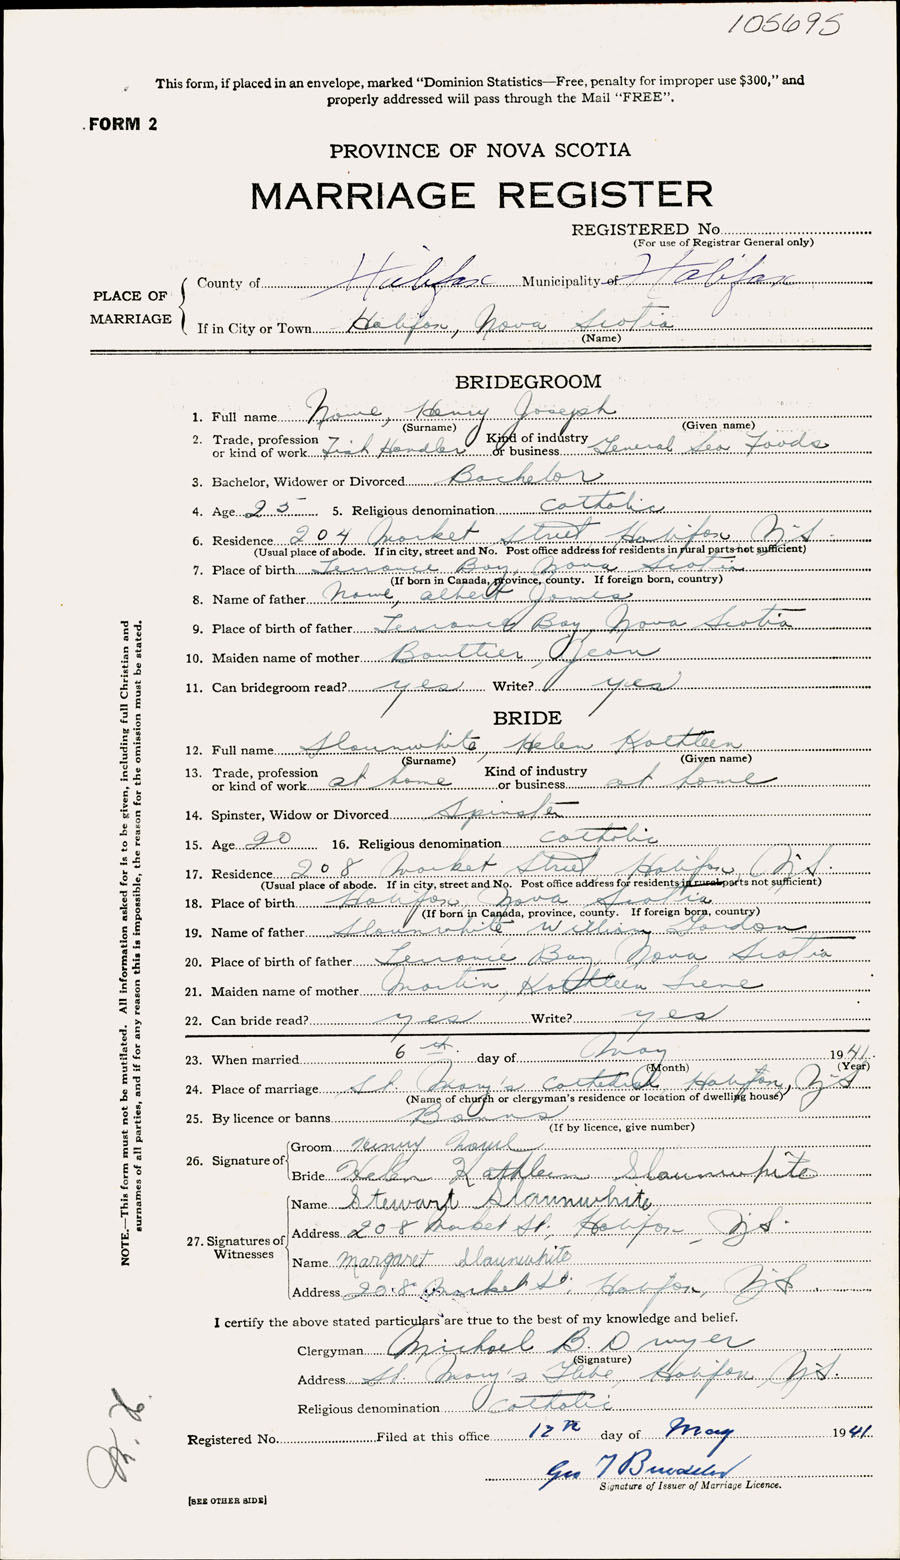 105695
This form, if placed in an envelope, marked “Dominion Statistics—Free, penalty for improper use $300,” and
properly addressed will pass through the Mail “FREE”.
FORM 2
PROVINCE OF NOVA SCOTIA
MARRIAGE REGISTER
REGISTERED No.
(For use of Registrar General only)
PLACE OF MARRIAGE
County of Halifax Municipality of Halifax
If in City or Town Halifax, Nova Scotia
(Name)
BRIDEGROOM
1. Full name Henry Joseph
(Surname) (Given name)
2. Trade, profession Kind of industry
or kind of work Fish Handler or business General Sea Foods
3. Bachelor, Widower or Divorced Bachelor
4. Age 25 5. Religious denomination Catholic
6. Residence 204 Market Street Halifax N.S.
(Usual place of abode. If in city, street and No. Post office address for residents in rural parts not sufficient)
7. Place of birth Terrance Bay, Nova Scotia
(If born in Canada, province, county. If foreign born, country)
8. Name of father Albert James
9. Place of birth of father Terrance Bay, Nova Scotia
10. Maiden name of mother Boutlier, Jean
11. Can bridegroom read? yes Write? yes
BRIDE
12. Full name Slaunwhite, Helen Kathleen
(Surname) (Given name)
13. Trade, profession Kind of industry
or kind of work at home or business at home
14. Spinster, Widow or Divorced Spinster
15. Age 20 16. Religious denomination Catholic
17. Residence 208 Market Street Halifax, N.S.
(Usual place of abode. If in city, street and No. Post office address for residents in rural parts not sufficient)
18. Place of birth Halifax, Nova Scotia
(If born in Canada, province, county. If foreign born, country)
19. Name of father Slaunwhite, William Gordon
20. Place of birth of father Terrance Bay, Nova Scotia
21. Maiden name of mother Martin, Kathleen Irene
22. Can bride read? yes Write? yes
23. When married 6th. day of May 1941.
(Month) (Year)
24. Place of marriage St. Mary's Cathedral Halifax, N.S
(Name of church or clergyman's residence or location of dwelling house)
25. By licence or banns Banns
(If by licence, give number)
26. Signature of
Groom Henry
Bride Helen Kathleen Slaunwhite
27. Signatures of Witnesses
Name Stewart Slaunwhite
Address 208 Market St., Halifax, N.S.
Name Margaret Slaunwhite
Address 208 Market St. Halifax, N.S.
I certify the above stated particulars are true to the best of my knowledge and belief.
Clergyman Michael B. Dwyer
(Signature)
Address St. Mary's Glebe, Halifax, N.S.
Religious denomination Catholic
Registered No. Filed at this office 12th day of May 1941.
Geo
Signature of Issuer of Marriage Licence.
[SEE OTHER SIDE]
NOTE.—This form must not be mutilated. All information asked for is to be given, including full Christian and
surnames of all parties, and if for any reason this is impossible, the reason for the omission must be stated.